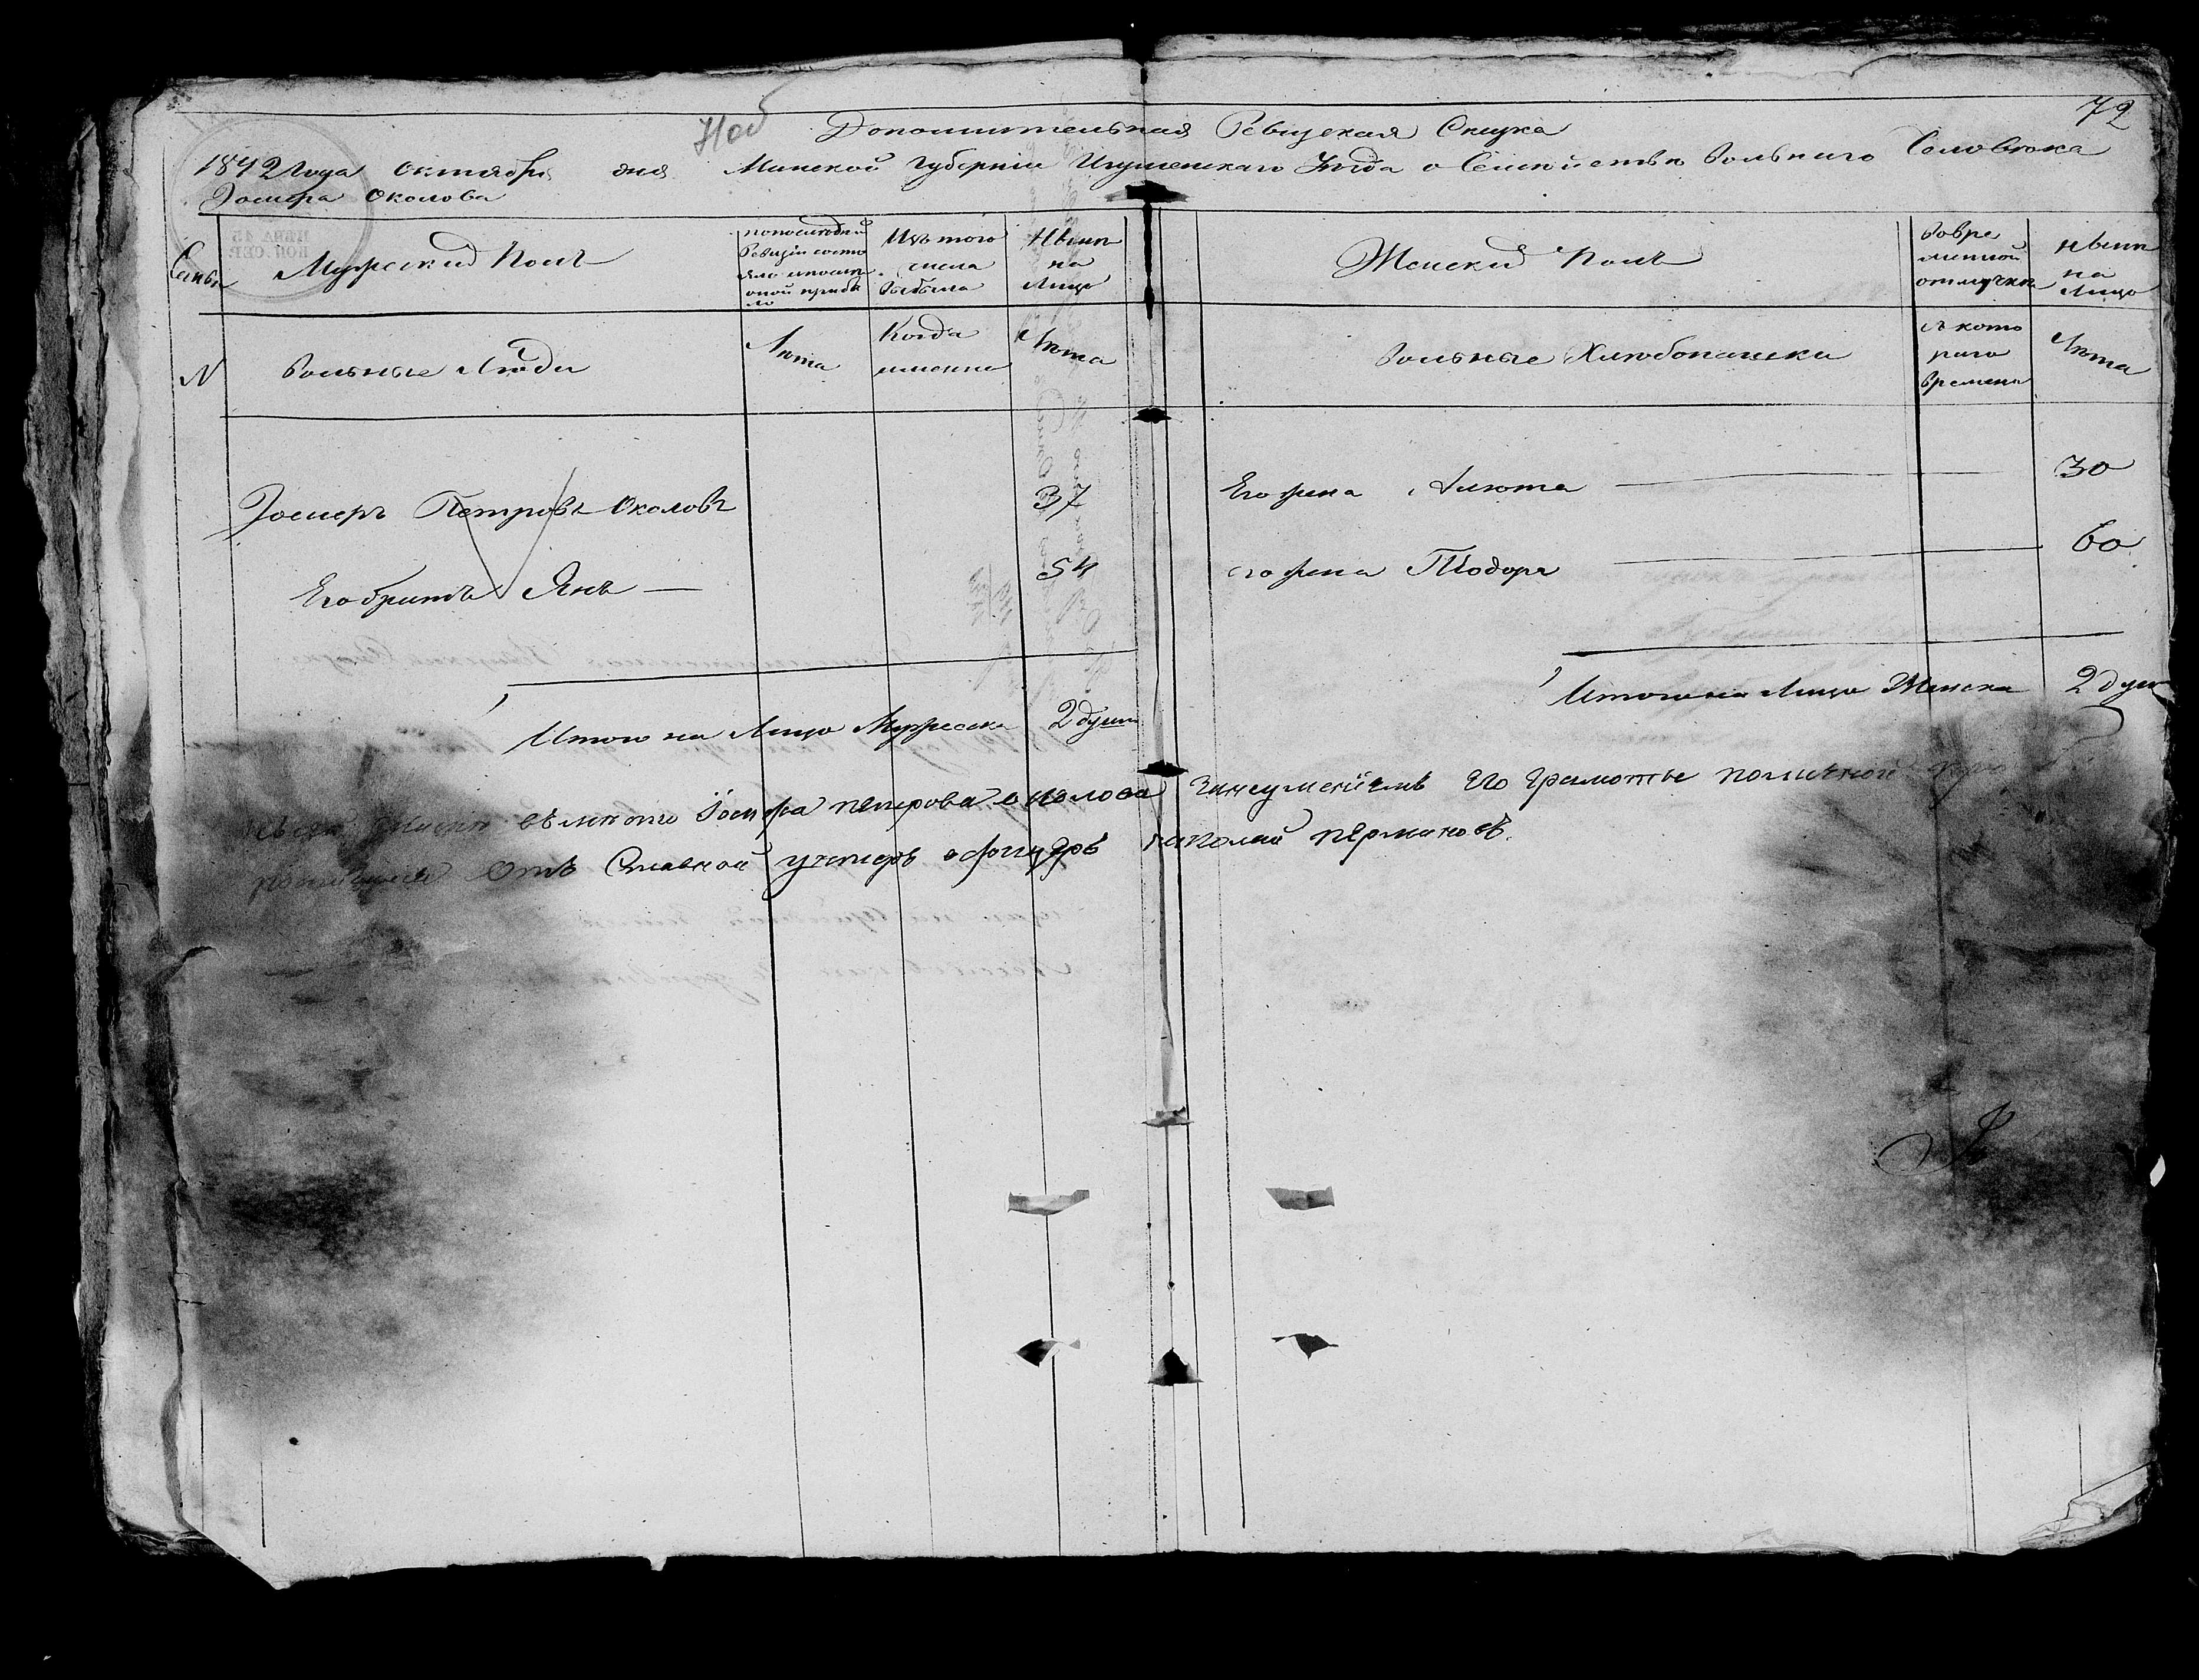 72
Дополнительная Ревизская Сказка
1842 года октября дня Минской Губерніи Игуменскаго Уезда о Семействе Вольнаго Человека
Іосифа Околова
Семьи
Мужеский Полъ
По последней Ревизіи состояло и после оной прибыло
Изъ того числа выбыло
Ныне на Лицо
Женский Полъ
Во временной отлучке
Ныне на Лицо
N
Вольные Люди
Лета
Когда именно
Лета
Вольные Хлебопашцы
Съ котораго времени
Лета
Іосифъ Петровъ Околовъ
37
Его жена Анюта
30
Его братъ Янъ
54
его жена Теодора
60
Итого на Лицо Мужеска 2 души
Итого на Лицо Женска 2 души
Іосифа петрова околова занеуменіемъ его грамоте поличной
отъ Славной унтеръ офицеръ николай